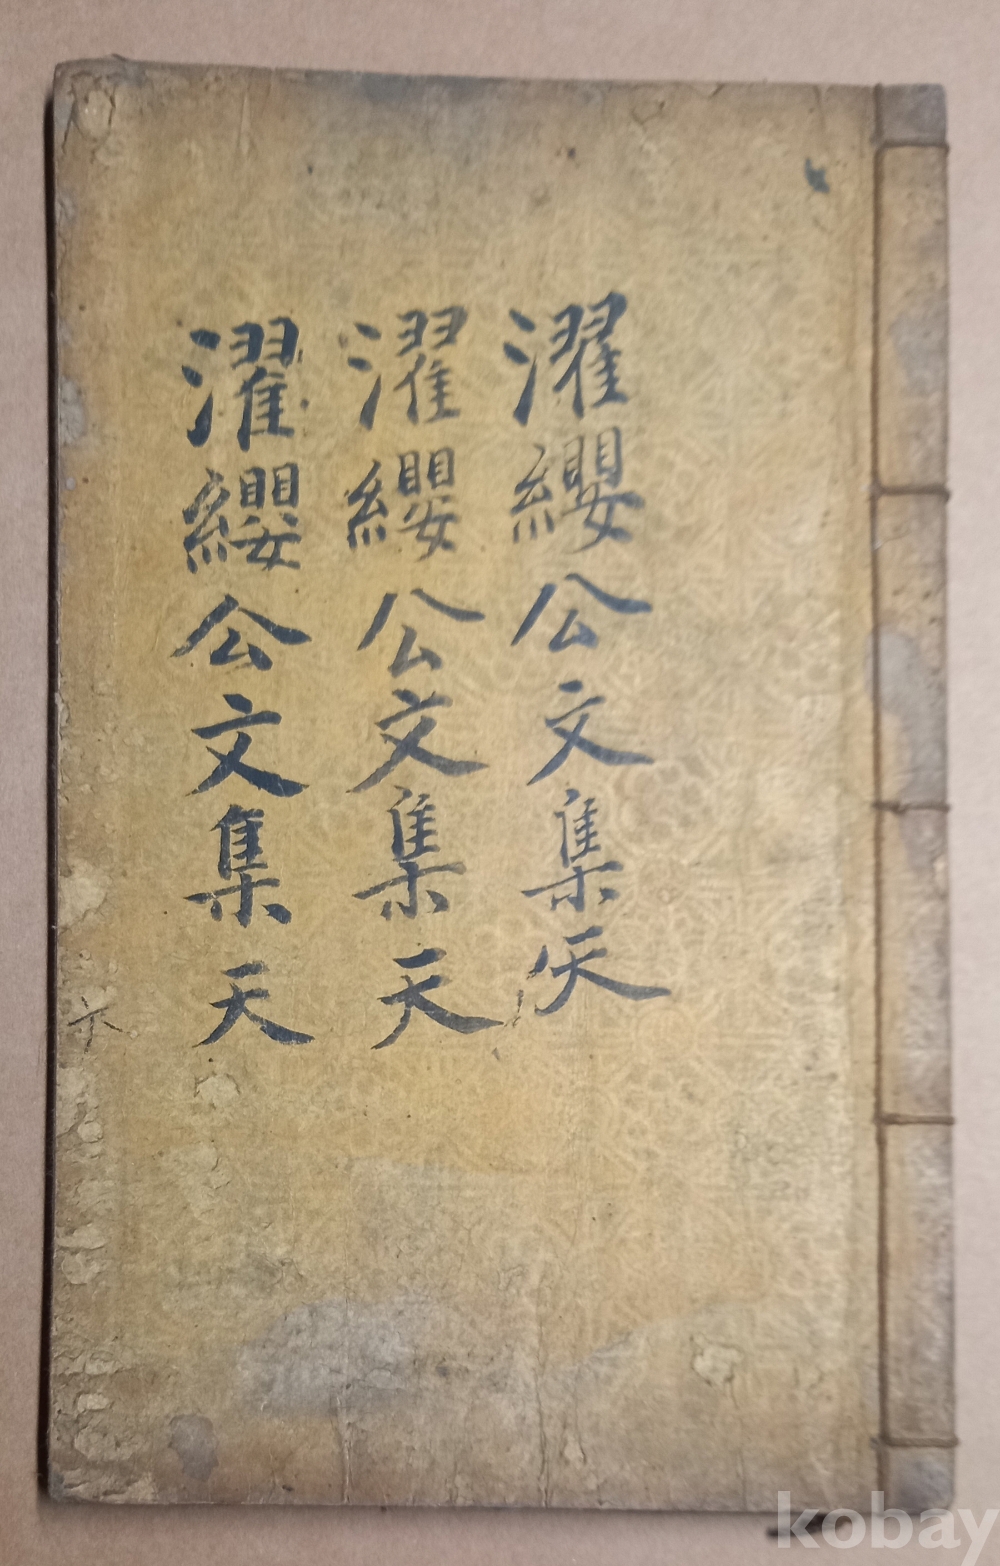 濯纓公文集天
濯纓公文集天
濯纓公文集天
kobay